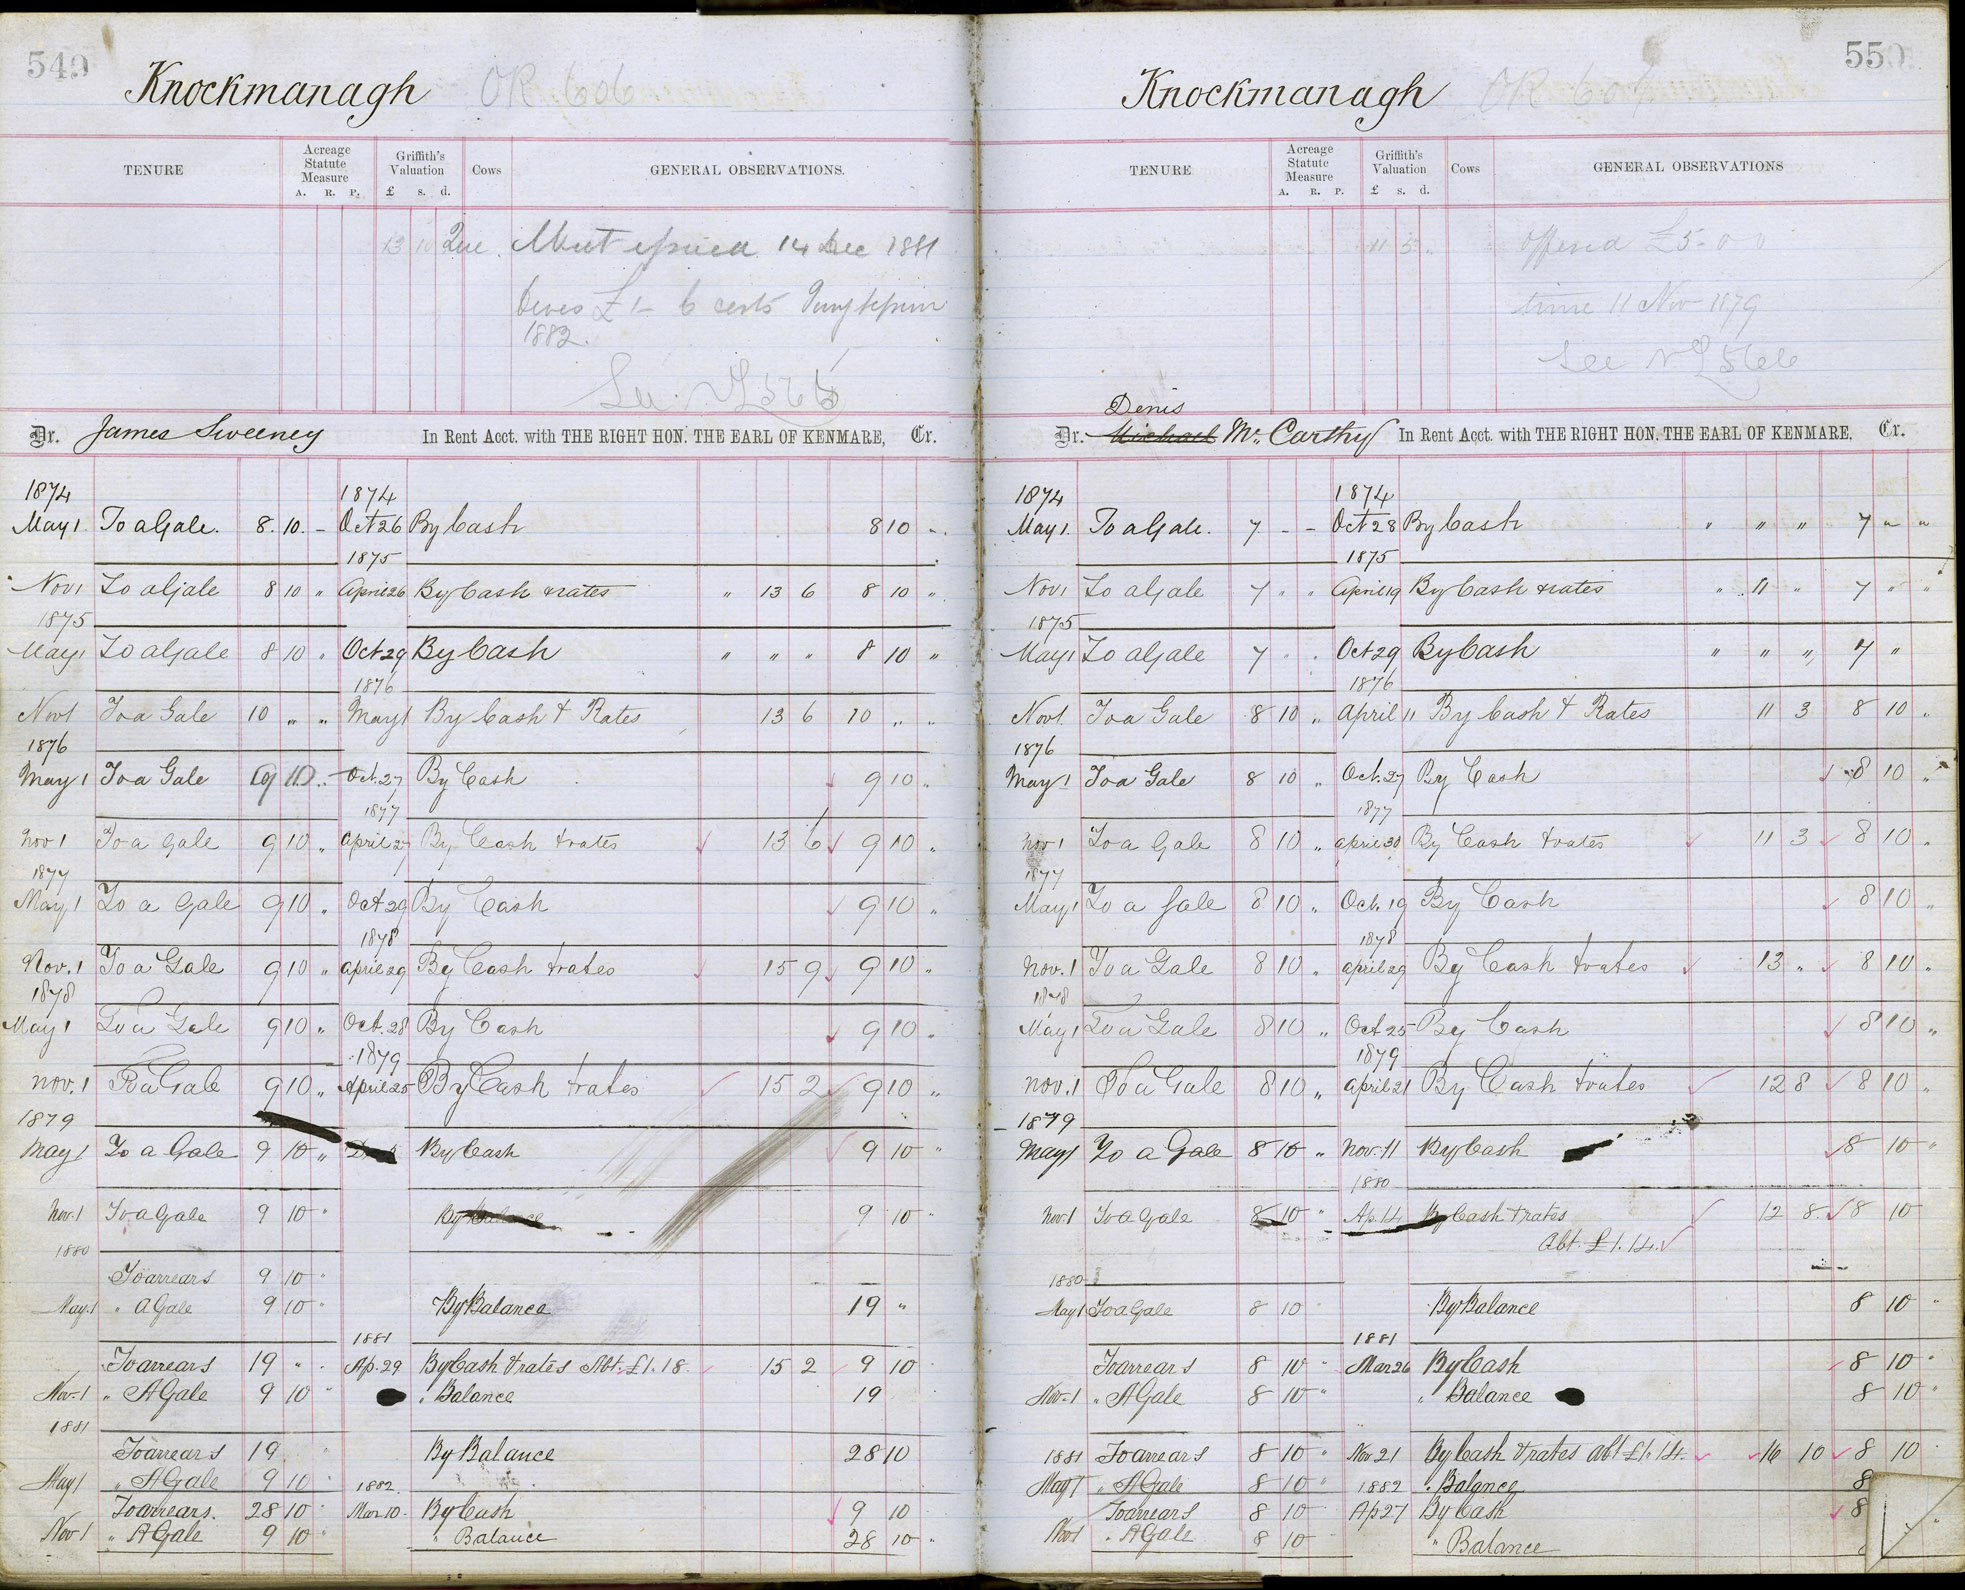 549
Knockmanagh OR 606
TENURE Acreage Statute Measure A. R. P. Griffith's Valuation £ s. d. Cows GENERAL OBSERVATIONS.
13 10 14 Dec 1881
£1 - 6
1882.
Dr. James Sweeney In Rent Acct. with THE RIGHT HON. THE EARL OF KENMARE, Cr.
1874 1874
May 1 To a Gale. 8. 10. - Oct 26 By Cash 8 10 -
1875
Nov 1 To a Gale 8 10 " April 26 By Cash & rates " 13 6 8 10 "
1875
May 1 To a Gale 8 10 " Oct 29 By Cash " " " 8 10 "
1876
Nov 1 To a Gale 10 " " May 1 By Cash & Rates 13 6 10 " "
1876
May 1 To a Gale 9 10 " Oct. 27 By Cash 9 10 "
1877
Nov 1 To a Gale 9 10 " April 27 By Cash & rates 13 6 9 10 "
1877
May 1 To a Gale 9 10 " Oct 29 By Cash 9 10 "
1878
Nov. 1 To a Gale 9 10 " April 29 By Cash & rates 15 9 9 10 "
1878
May 1 To a Gale 9 10 " Oct. 28 By Cash 9 10 "
1879
Nov. 1 To a Gale 9 10 " April 25 By Cash & rates 15 2 9 10 "
1879
May 1 To a Gale 9 10 " By Cash 9 10 "
Nov. 1 To a Gale 9 10 " By Balance 9 10 "
1880
To arrears 9 10 "
May 1 " A Gale 9 10 " By Balance 19 "
1881
To arrears 19 " " Ap. 29 By Cash & rates Abt. £1. 18. 15 2 9 10
Nov. 1 " A Gale 9 10 " " Balance 19
1881
To arrears 19 By Balance 28 10
May 1 " A Gale 9 10 1882.
To arrears. 28 10 Mar 10. By Cash 9 10
Nov 1 " A Gale 9 10 " " Balance 28 10 "
550
Knockmanagh OR
TENURE Acreage Statute Measure A. R. P. Griffith's Valuation £ s. d. Cows GENERAL OBSERVATIONS
11 5 offered £5-0-0
time 11 Nov 1879
See 566
Denis
Dr. Michael Mc. Carthy In Rent Acct. with THE RIGHT HON. THE EARL OF KENMARE, Cr.
1874 1874
May 1. To a Gale. 7 - - Oct 28 By Cash " " " 7 " "
1875
Nov 1 To a Gale 7 " " April 19 By Cash & rates " 11 " 7 " "
1875
May 1 To a Gale 7 " " Oct 29 By Cash " " " 7 "
1876
Nov 1. To a Gale 8 10 " April 11 By Cash & Rates 11 3 8 10 "
1876
May 1 To a Gale 8 10 " Oct. 27 By Cash 8 10 "
1877
Nov 1 To a Gale 8 10 " April 30 By Cash & rates 11 3 8 10 "
1877
May 1 To a Gale 8 10 " Oct. 19 By Cash 8 10 "
1878
Nov. 1 To a Gale 8 10 " April 29 By Cash & rates 13 " 8 10 "
1878
May 1 To a Gale 8 10 " Oct 25 By Cash 8 10 "
1879
Nov. 1 To a Gale 8 10 " April 21 By Cash & rates 12 8 8 10 "
1879
May 1 To a Gale 8 10 " Nov. 11 By Cash 8 10 "
1880
Nov. 1 To a Gale 8 10 " Ap. 14 By Cash & rates 12 8. 8 10
Abt. £1. 14.
1880
May 1 To a Gale 8 10 By Balance 8 10 "
1881
To arrears 8 10 " Mar 26 By Cash 8 10 "
Nov. 1 " A Gale 8 10 " " Balance 8 10 "
1881 To arrears 8 10 " Nov 21 By Cash & rates abt £1. 14. 16 10 8 10
May 1 " A Gale 8 10 " 1882 " Balance 8
To arrears 8 10 Ap 27 By Cash 8
Nov 1 " A Gale 8 10 " Balance